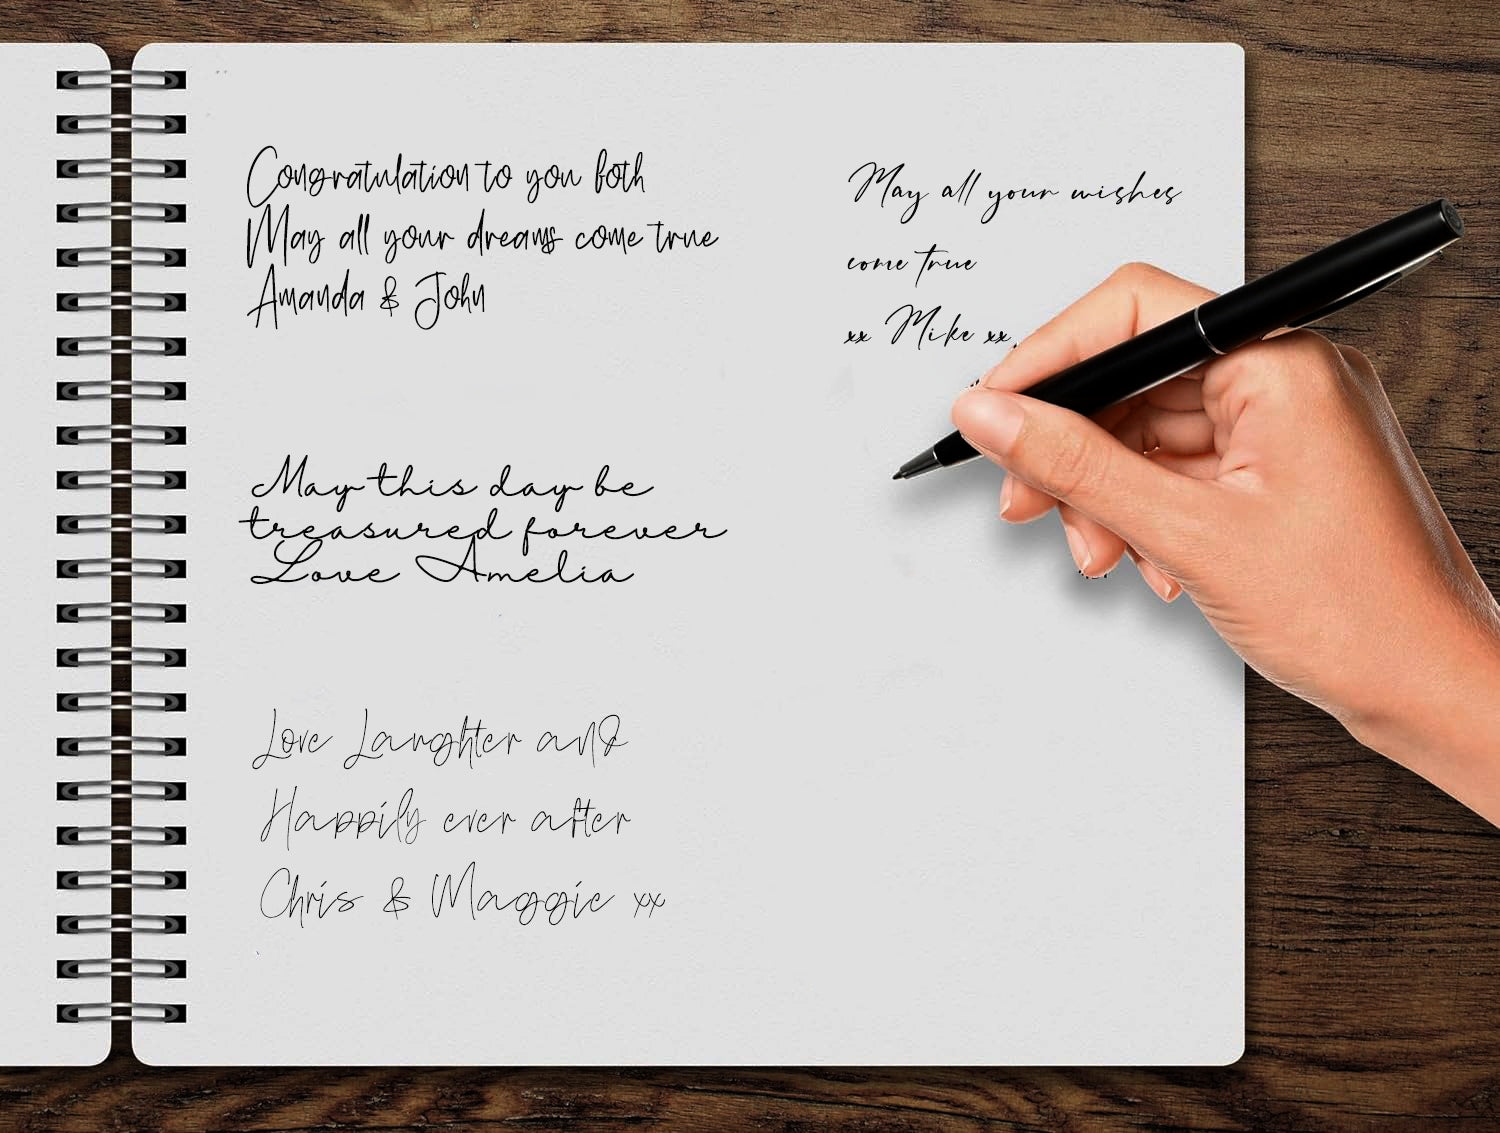 Congratulation to you both
May all your dreams come true
Amanda & John
May this day be
treasured forever
Love Amelia
Love Laughter and
Happily ever after
Chris & Maggie xx
May all your wishes
come true
xx Mike xx